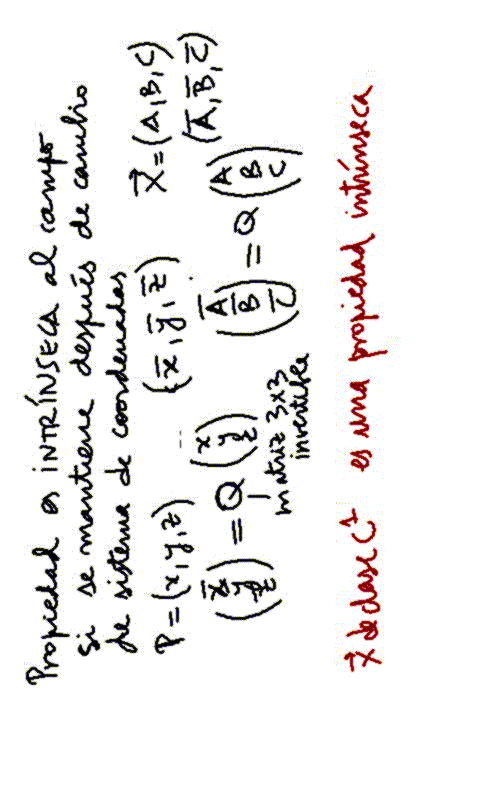 Propiedad es INTRÍNSECA al campo
si se mantiene después de cambio
de sistema de coordenadas
P = (x, y, z) (x̄, ȳ, z̄) X⃗ = (A, B, C)
(Ā, B̄, C̄)
(x̄ ȳ z̄) = Q (x y z) (Ā B̄ C̄) = Q (A B C)
matriz 3x3
invertible
X⃗ de clase C¹ es una propiedad intrínseca